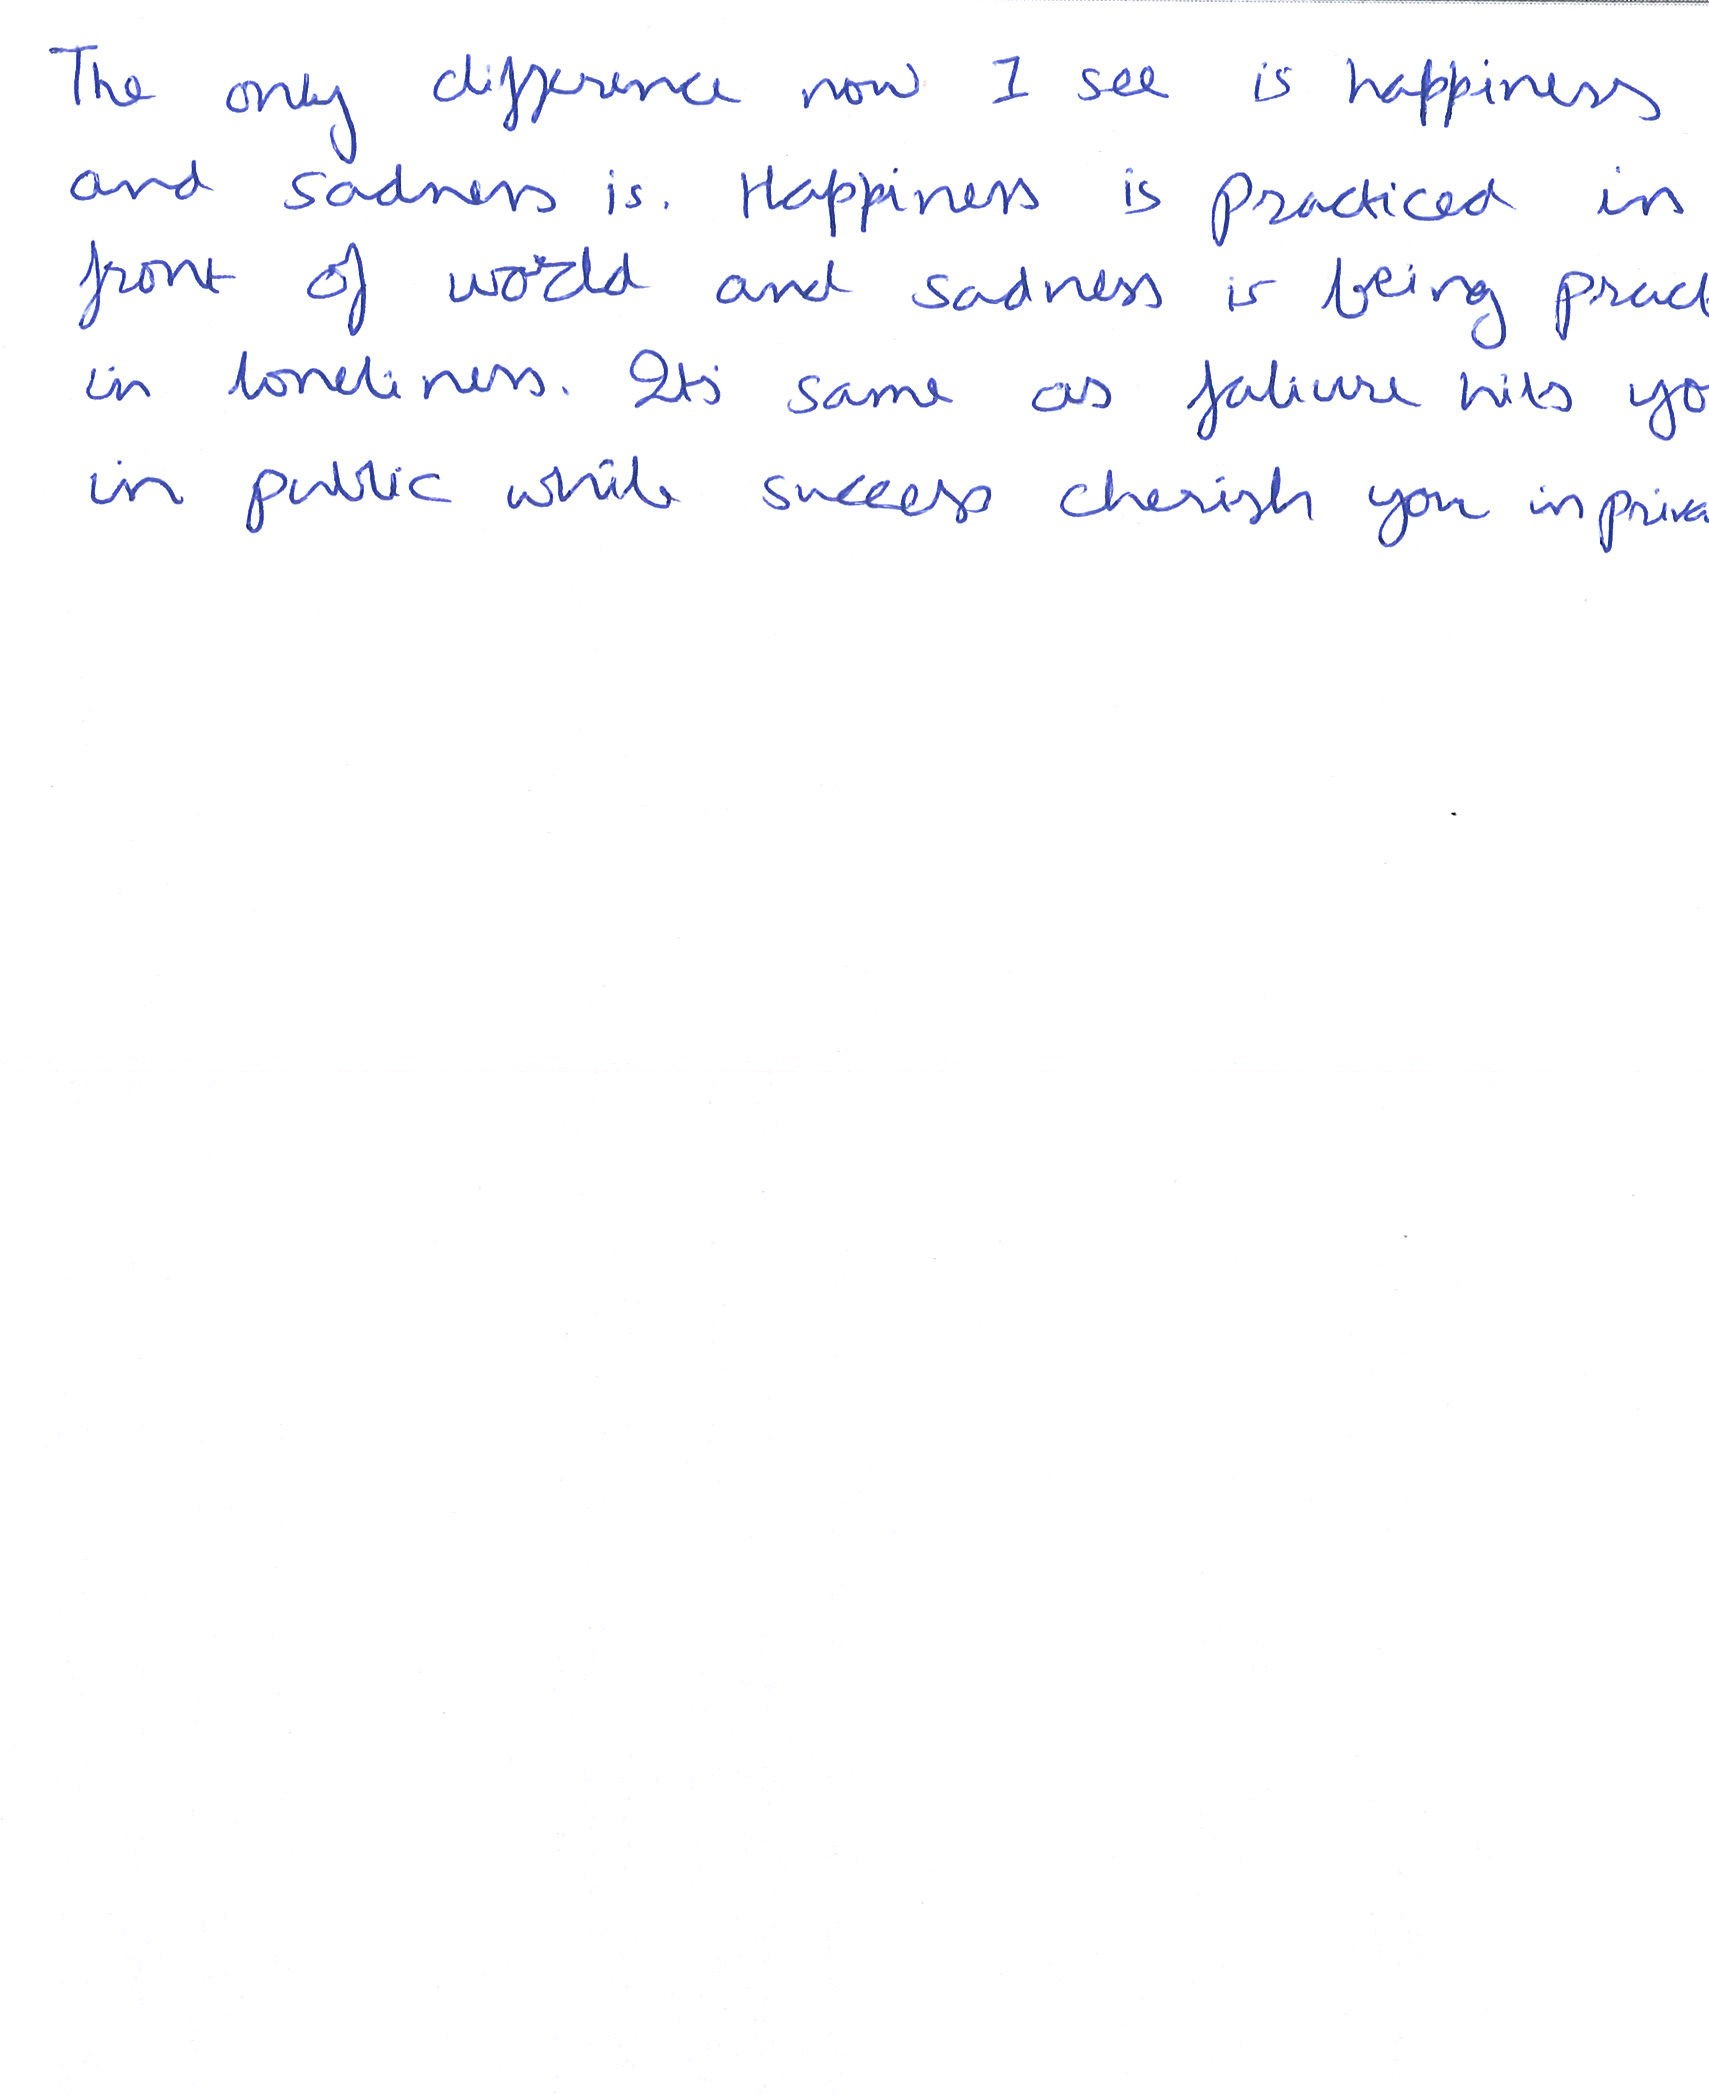 The only difference now I see is happiness
and sadness is. Happiness is practiced in
front of world and sadness is being pract
in loneliness. Its same as faliure hits yo
in public while success cherish you in priva